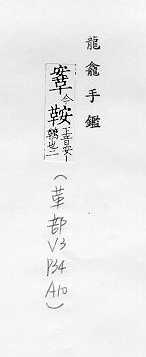 龍龕手鑑
鞌今鞍正音安丨
也二
(革部
V3
P34
A10)